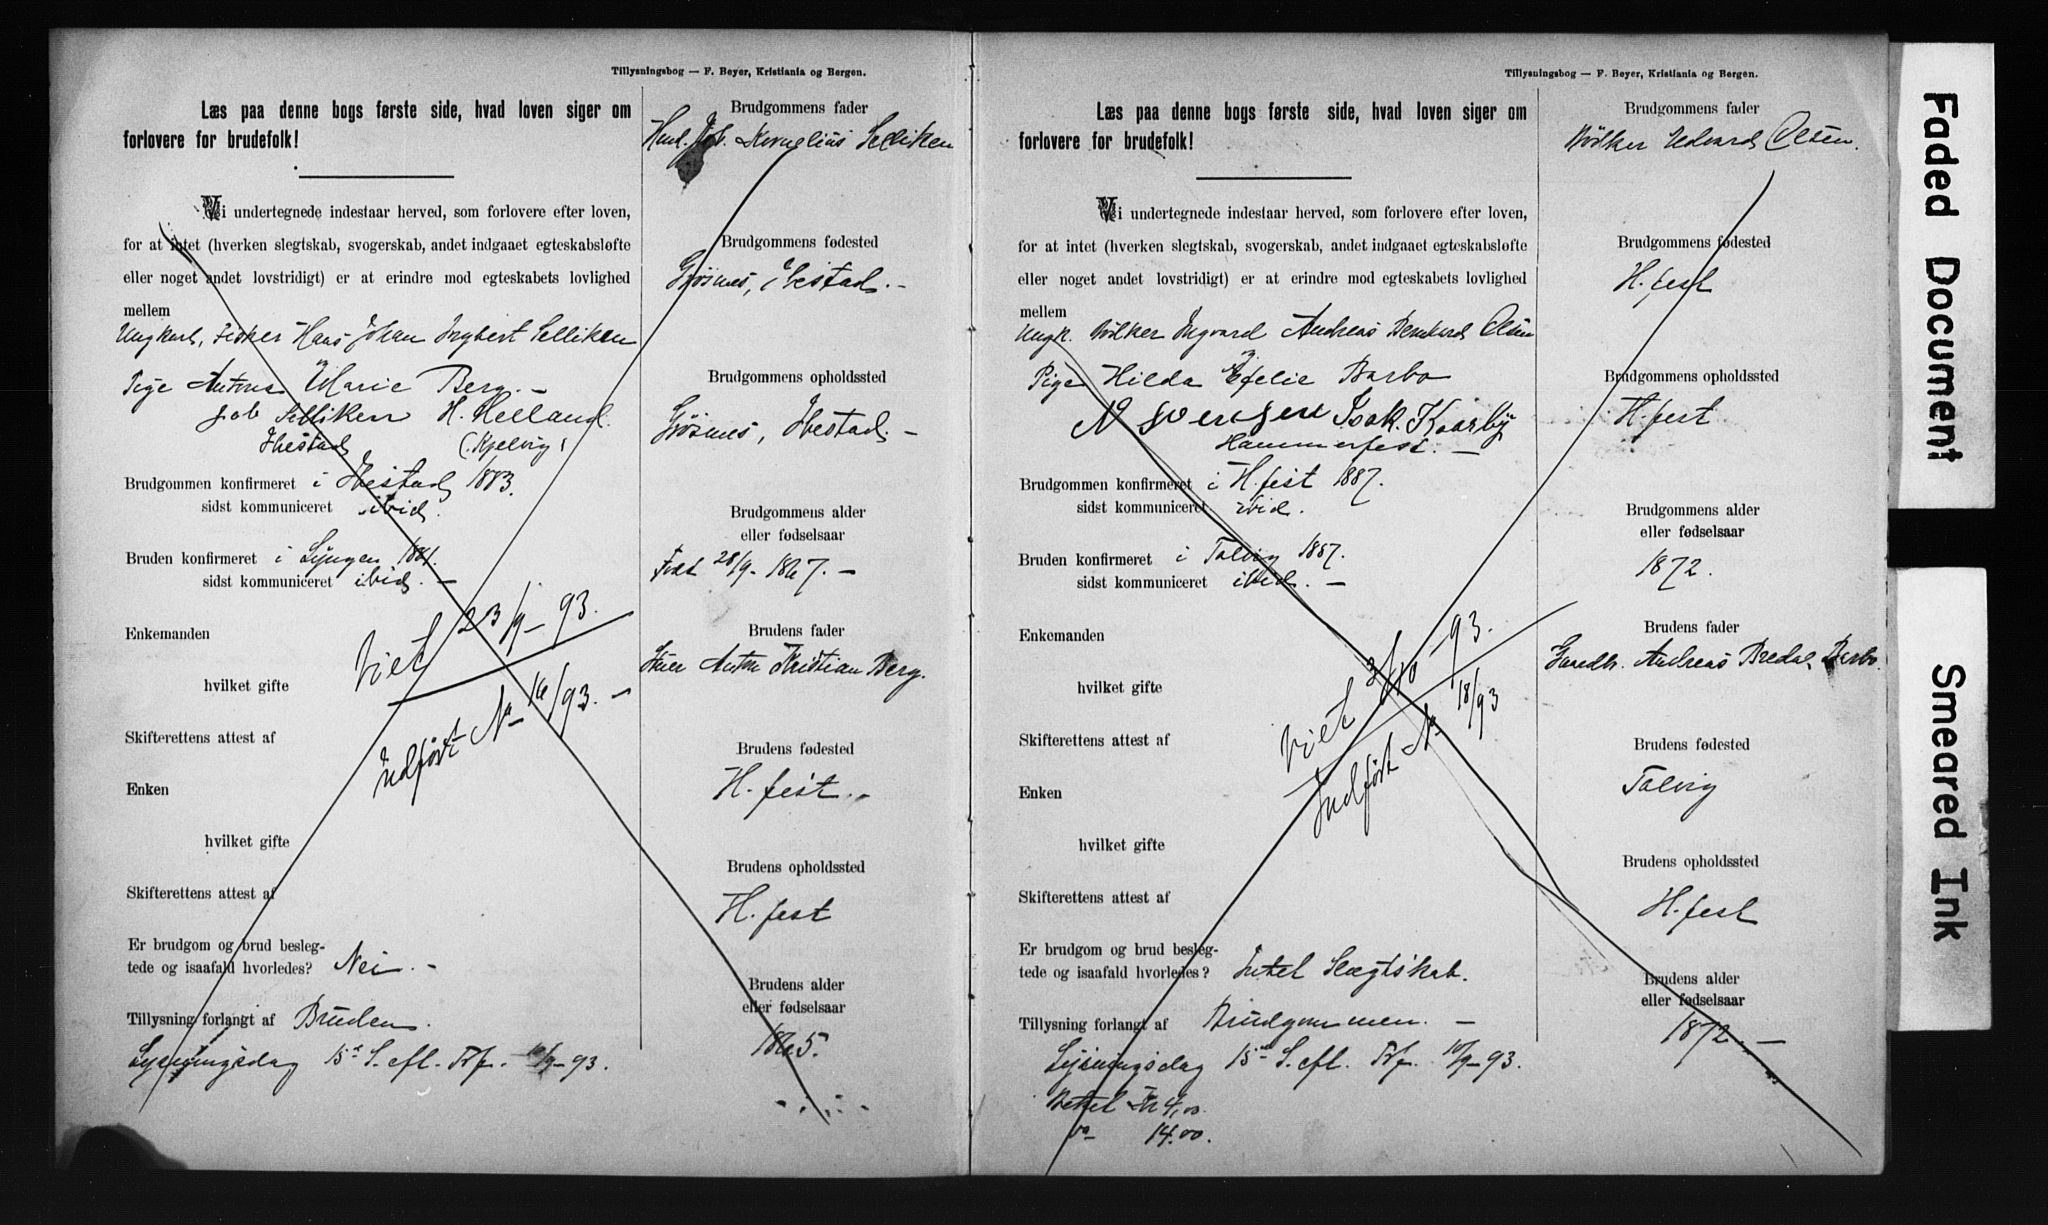 Tillysningsbog — F. Beyer, Kristiania og Bergen.
Læs paa denne bogs første side, hvad loven siger om
forlovere for brudefolk!
Vi undertegnede indestaar herved, som forlovere efter loven,
for at intet (hverken slegtskab, svogerskab, andet indgaaet egteskabsløfte
eller noget andet lovstridigt) er at erindre mod egteskabets lovlighed
mellem
Ungkarl, Fisker Hans Johan Ingbert Selliken
og
Pige Antona Marie Berg. —
Job Selliken H. Helland.
Ibestad (Kjelvig)
Brudgommen konfirmeret i Ibestad 1883.
sidst kommuniceret ibid.
Bruden konfirmeret i Lyngen 1881.
sidst kommuniceret ibid. —
Enkemanden
hvilket gifte
Viet 23/9 – 93.
Indført No 16/93. —
Skifterettens attest af
Enken
hvilket gifte
Skifterettens attest af
Er brudgom og brud besleg-
tede og isaafald hvorledes? Nei. —
Tillysning forlangt af Bruden.
Lysningsdag 15de S. efl. Trf. 10/9–93.
Brudgommens fader
Kornelius Selliken
Brudgommens fødested
Grøsnes, Ibestad. —
Brudgommens opholdssted
Grøsnes, Ibestad —
Brudgommens alder
eller fødselsaar
Født 28/9 – 1867. —
Brudens fader
Anton Kristian Berg.
Brudens fødested
H.fest. —
Brudens opholdssted
H.fest
Brudens alder
eller fødselsaar
1865.
Tillysningsbog — F. Beyer, Kristiania og Bergen.
Læs paa denne bogs første side, hvad loven siger om
forlovere for brudefolk!
Vi undertegnede indestaar herved, som forlovere efter loven,
for at intet (hverken slegtskab, svogerskab, andet indgaaet egteskabsløfte
eller noget andet lovstridigt) er at erindre mod egteskabets lovlighed
mellem
Ungk. Bødker Ingvard Andreas Bernhard Olsen
og
Pige Hilda Efelie Barbo
N Svensen Isak Kaarby
Hammerfest. —
Brudgommen konfirmeret i H.fest 1887.
sidst kommuniceret ibid.
Bruden konfirmeret i Talvig 1887.
sidst kommuniceret ibid. —
Enkemanden
hvilket gifte
Viet 3/10 – 93.
Indført No 18/93
Skifterettens attest af
Enken
hvilket gifte
Skifterettens attest af
Er brudgom og brud besleg-
tede og isaafald hvorledes? Intet Slægtskab.
Tillysning forlangt af Brudgommen. —
Lysningsdag 15de S. efl. Trf. 10/9–93.
Betalt Kr 4,00.
14.00.
Brudgommens fader
Bødker Edvard Olsen.
Brudgommens fødested
H.fest
Brudgommens opholdssted
H.fest
Brudgommens alder
eller fødselsaar
1872.
Brudens fader
Gaardb. Andreas Bredal Barbo.
Brudens fødested
Talvig
Brudens opholdssted
H.fest
Brudens alder
eller fødselsaar
1872. —
Faded Document
Smeared Ink